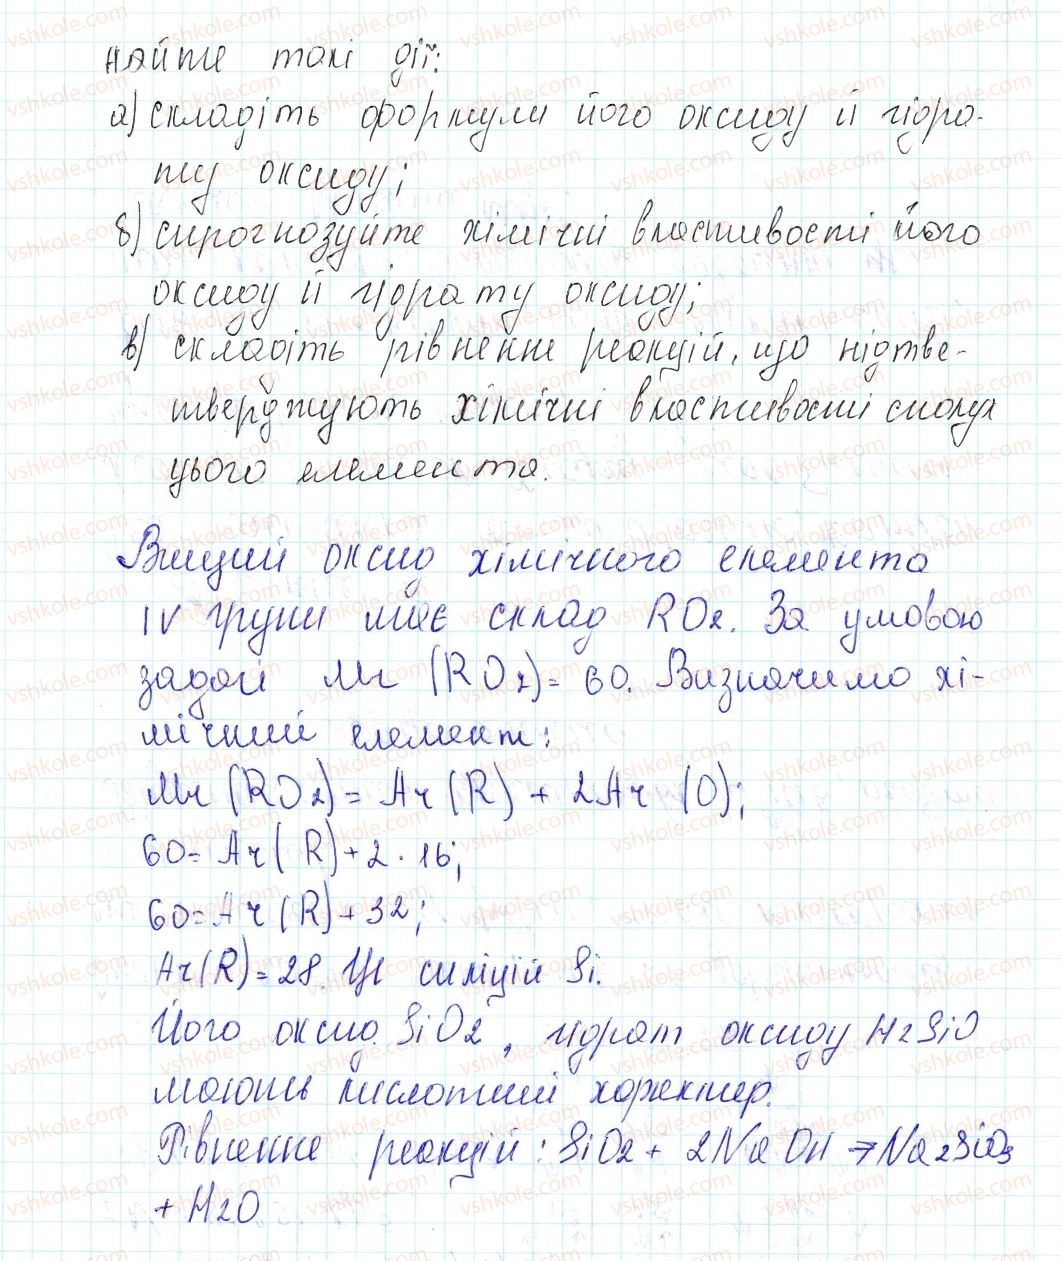 найте такі дії:
а) складіть формули його оксиду й гідра-
ту оксиду;
б) спрогнозуйте хімічні властивості його
оксиду й гідрату оксиду;
в) складіть рівнення реакцій, що підтве-
тверджують хімічні властивості сполук
цього елемента.
Вищий оксид хімічного елемента
IV групи має склад RO2. За умовою
задачі Mr (RO2) = 60. Визначимо хі-
мічний елемент:
Mr (RO2) = Ar (R) + 2Ar (O);
60 = Ar (R) + 2 · 16;
60 = Ar (R) + 32;
Ar (R) = 28. Це силіцій Si.
Його оксид SiO2, гідрат оксиду H2SiO
мають кислотний характер.
Рівнення реакцій: SiO2 + 2NaOH → Na2SiO3
+ H2O